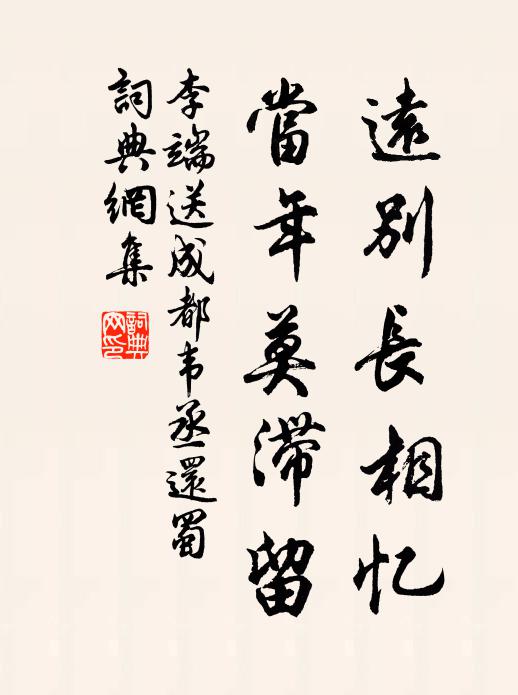 遠別長相忆
當年莫滞留
李端送成都韦丞還蜀
詞典網集
詞典網印